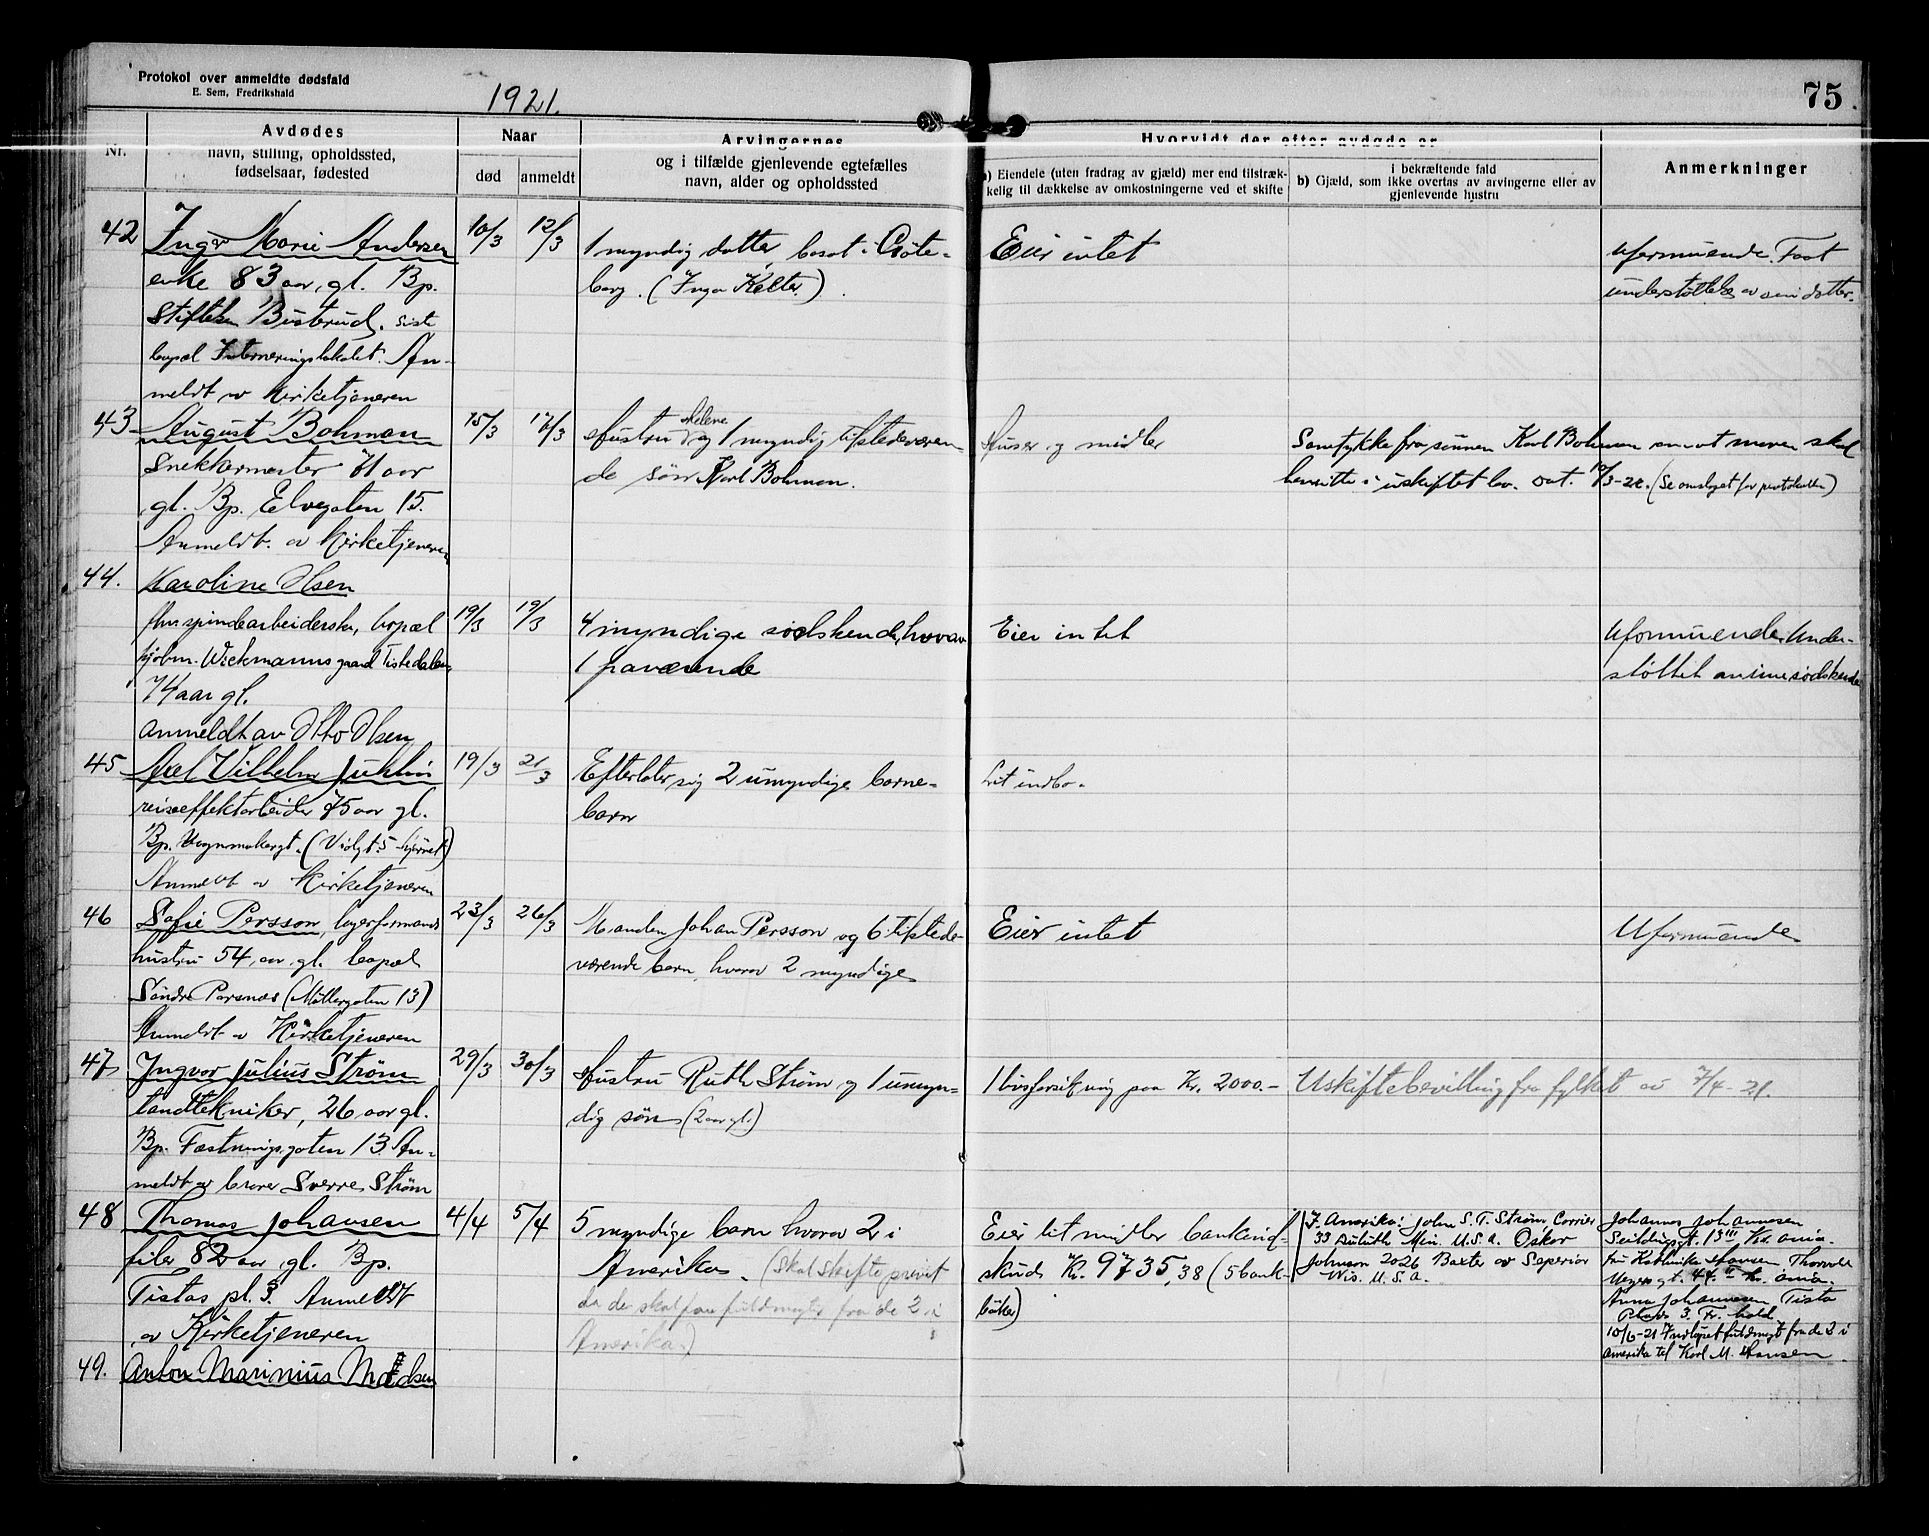 Protokol over anmeldte dødsfald
E. Sem, Fredrikshald
1921.
75
Nr.
Avdødes
navn, stilling, opholdssted,
fødselsaar, fødested
Naar
død
anmeldt
Arvingernes
og i tilfælde gjenlevende egtefælles
navn, alder og opholdssted
Hvorvidt der efter avdøde er
a) Eiendele (uten fradrag av gjæld) mer end tilstræk-
kelig til dækkelse av omkostningerne ved et skifte
i bekræftende fald
b) Gjæld, som ikke overtas av arvingerne eller av
gjenlevende hustru
Anmerkninger
42
Inger Marie Andersen
enke 83 aar, gl. Bp.
Stiftelsen Busterud, siste
bopæl Interneringslokalet. An-
meldt av Kirketjeneren
10/3
12/3
1 myndig datter, bosat i Gøte-
borg. (Inga Kelter)
Eier intet
Uformuende. Faat
understøttelse av sin datter.
43
August Bohman
Snekkermester 71 aar
gl. Bp. Elvegaten 15.
Anmeldt av Kirketjeneren
15/3
17/3
Hustru Helene og 1 myndig tilstedeværen-
de søn Karl Bohman.
Huser og midler
Samtykke fra sønnen Karl Bohman om at moren skal
hensitte i uskiftet bo. Dat. /3-21. (Se omslaget for protokollen)
44.
Karoline Olsen
fhv spindearbeiderske, bopæl
hjbm. Wiekmannsgaard Tistedalen,
74 aar gl.
anmeldt av Otto Olsen
19/3
19/3
4 myndige sødskende, hvorav
1 fraværende
Eier intet
Uformuende. Under-
støttet av sine sødskende
45
Axel Vilhelm Juhlin
reiseeffektarbeider 75 aar gl.
Bp. Vognmakergt. (Violgt. 5 hjørnet)
Anmeldt av Kirketjeneren
19/3
21/3
Efterlater sig 2 umyndige barne-
barn
Lit indbo.
46
Sofie Persson, lagerformands
hustru 54 aar, gl. bopæl
Søndre Parsnæs (Møllergaten 13)
Anmeldt av Kirketjeneren
23/3
26/3
Manden Johan Persson og 6 tilstede-
værende barn, hvorav 2 myndige
Eier intet
Uformuende
47
Ingvar Julius Strøm
tandtekniker, 26 aar gl.
Bp. Fæstningsgaten 13. An-
meldt av bror Sverre Strøm
29/3
30/3
Hustru Ruth Strøm og 1 umyn-
dig søn (2 aar gl.)
Livsforsikring paa Kr. 2000.-
Uskiftebevilling fra fylket av 7/4-21.
48
Thomas Johansen
filer 82 aar, gl. Bp.
Tistas pl. 3. Anmeldt
av Kirketjeneren
4/4
5/4
5 myndige barn hvorav 2 i
Amerika. (Skal skifte privat
da de skal faa fuldmagt fra de 2 i
Amerika.)
Eier lit midler bankind-
skud Kr. 9735,38 (5 bank-
bøker)
I Amerika: John S. T. Strøm, Carrier
33 Duluth Min. U.S.A. Oskar
Johnson 2026 Baxter av Superior
Wis. U.S.A.
Johannes Johannesen
Seildugsgt. 13 III Kr.ania.
fru Kathinka Hansen Thorvald
Meyers gt. 44 II Kr.ania.
Anna Johannesen Tista
Plads 3. Fr.hald
10/6-21 Indløpet fuldmagt fra de 2 i
Amerika til Karl M. Hansen.
49.
Anton Marinius Madsen